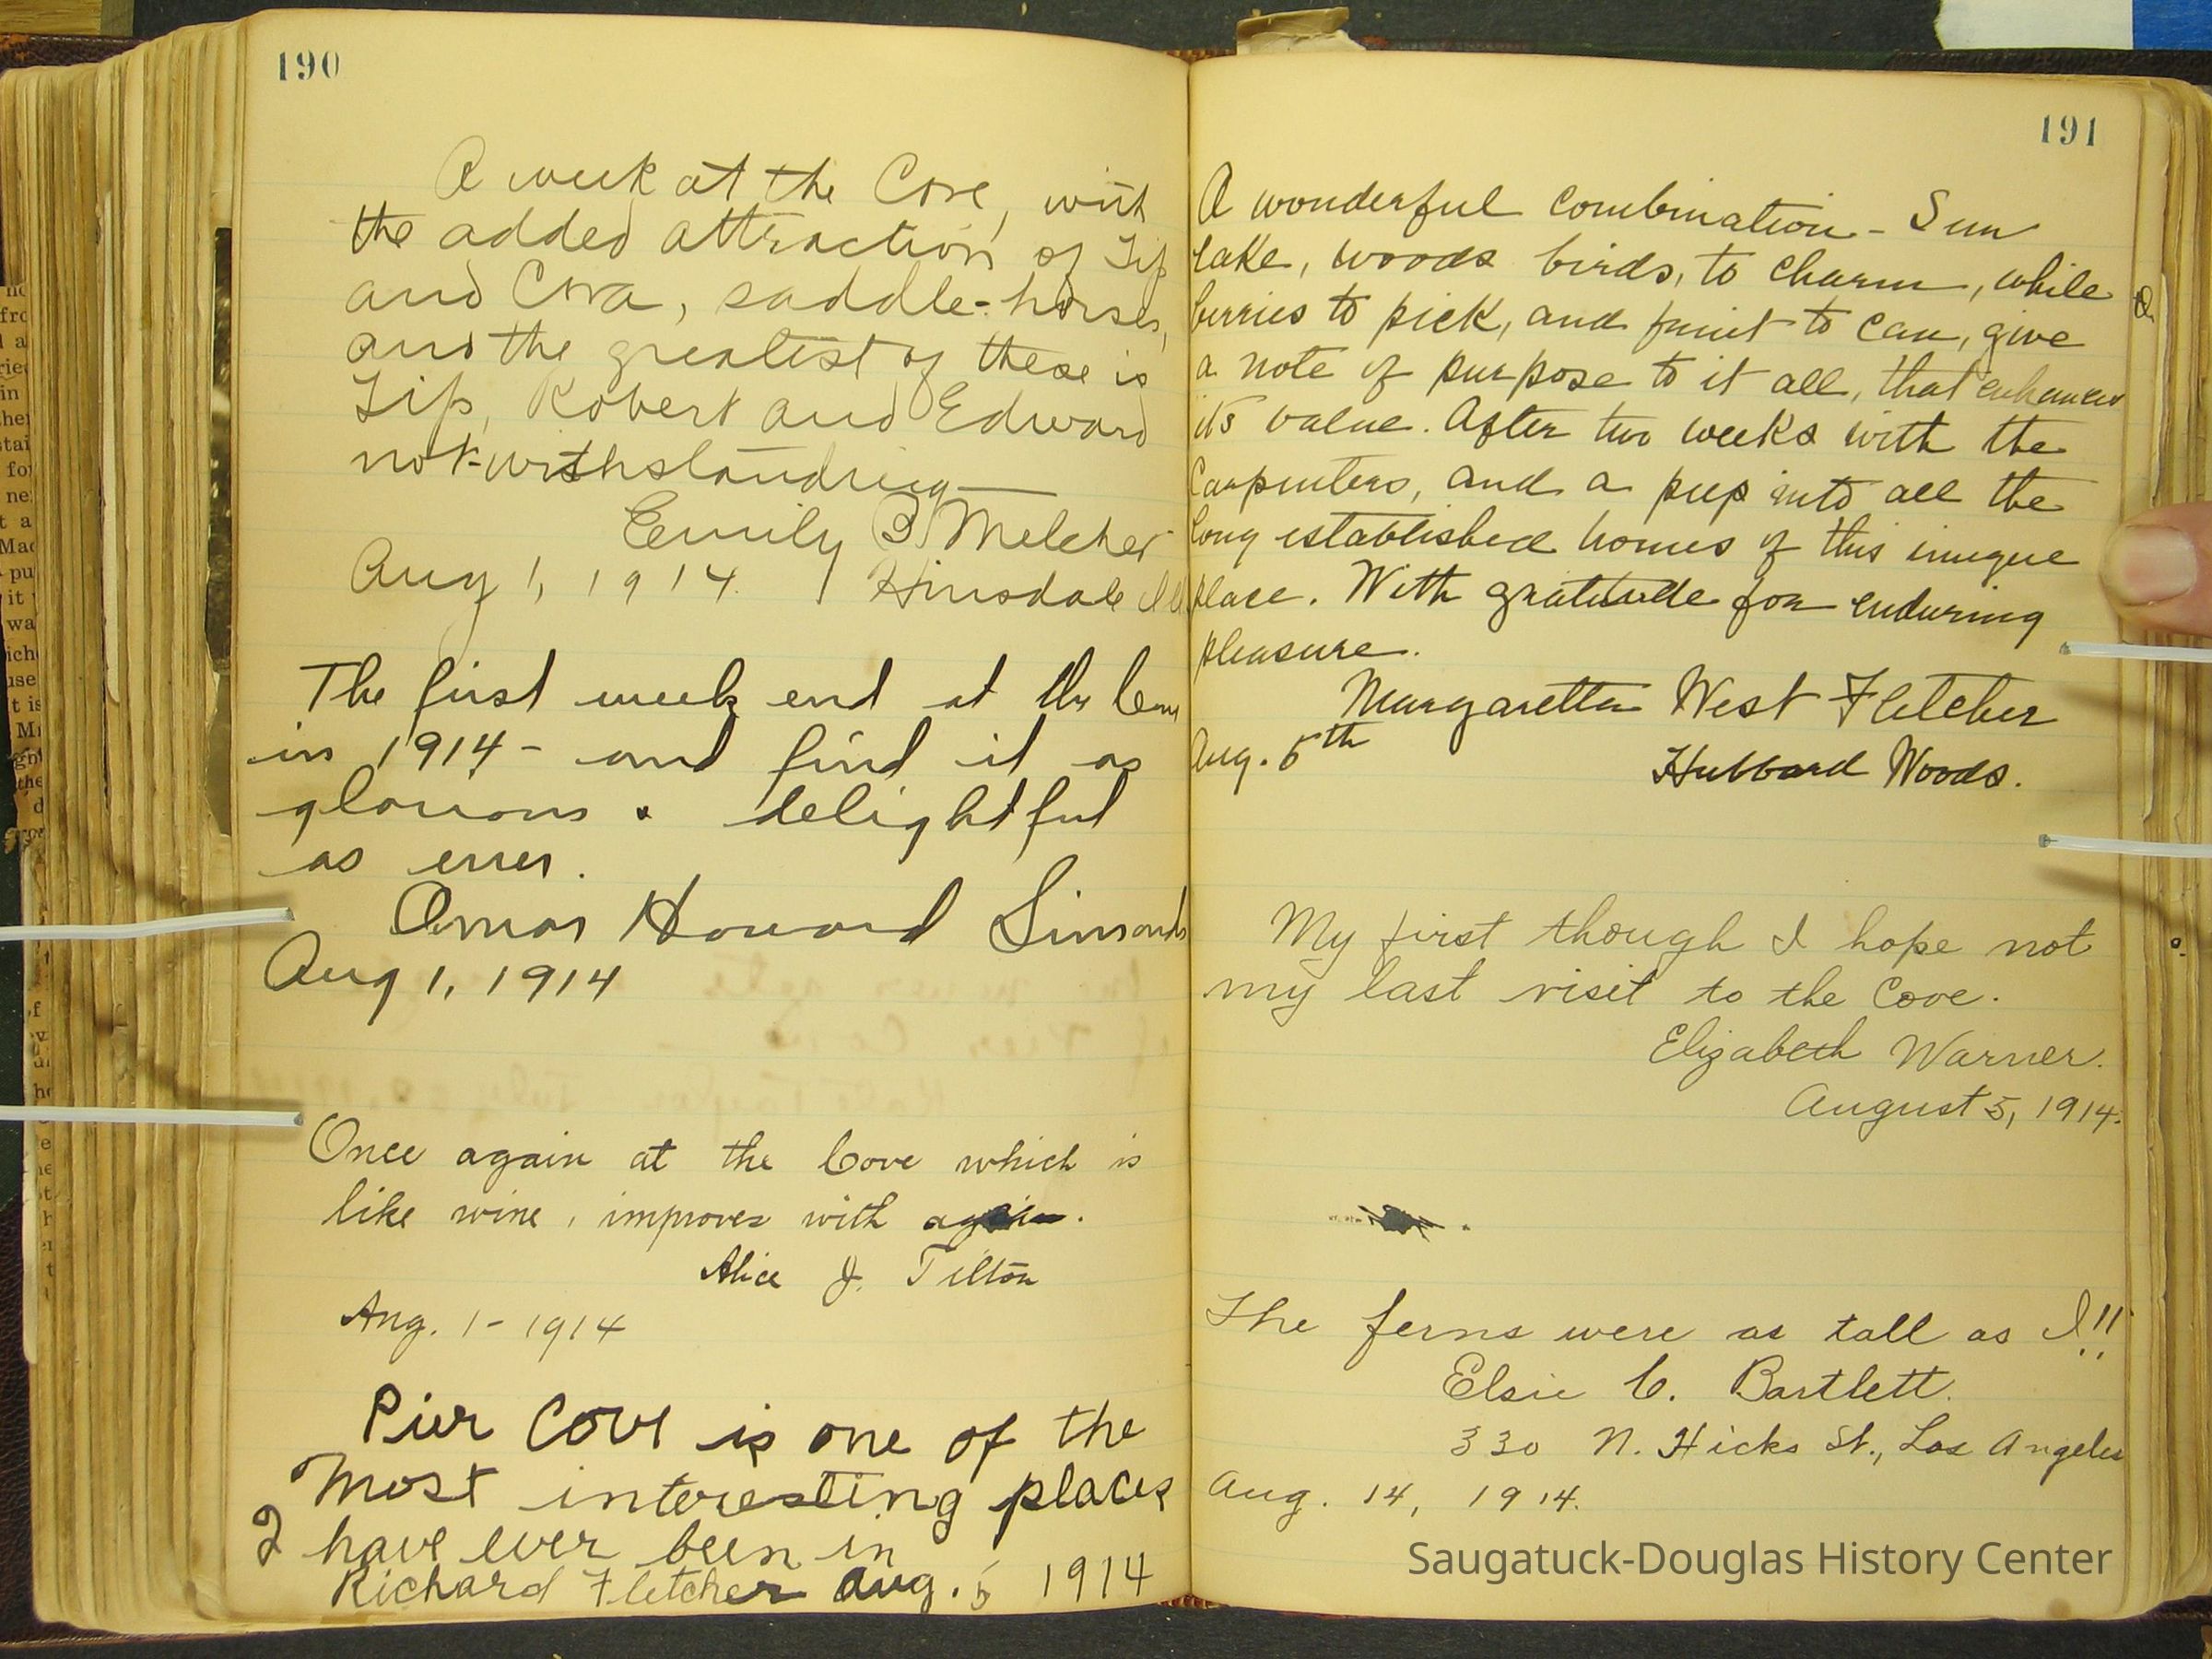 190
A week at the Cove, with
the added attraction of Tip
and Cora, saddle-horses,
and the greatest of these is
Tip, Robert and Edward
not-withstanding—
Emily B Melcher
Aug 1, 1914. Hinsdale Ill
The first week end at the Cove
in 1914 - and find it as
glorious & delightful
as ever.
Omar Howard Simonds
Aug 1, 1914
Once again at the Cove which is
like wine, improves with
Alice J. Tilton
Aug. 1 - 1914
Pier Cove is one of the
Most interesting places
I have ever been in
Richard Fletcher Aug. 5 1914
191
A wonderful combination - Sun
lake, woods birds, to charm, while
berries to pick, and fruit to can, give
a note of purpose to it all, that enhances
its value. After two weeks with the
Carpenters, and a peep into all the
long established homes of this unique
place. With gratitude for enduring
pleasure.
Margaretta West Fletcher
Aug. 5th
Hubbard Woods.
My first though I hope not
my last visit to the Cove.
Elizabeth Warner.
August 5, 1914.
The ferns were as tall as I!!
Elsie C. Bartlett.
330 N. Hicks St., Los Angeles
Aug. 14, 1914.
Saugatuck-Douglas History Center